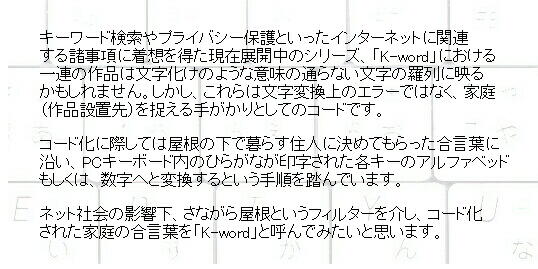 キーワード検索やプライバシー保護といったインターネットに関連
する諸事項に着想を得た現在展開中のシリーズ、「K-word」における
一連の作品は文字化けのような意味の通らない文字の羅列に映る
かもしれません。しかし、これらは文字変換上のエラーではなく、家庭
（作品設置先）を捉える手がかりとしてのコードです。
コード化に際しては屋根の下で暮らす住人に決めてもらった合言葉に
沿い、PCキーボード内のひらがなが印字された各キーのアルファベッド
もしくは、数字へと変換するという手順を踏んでいます。
ネット社会の影響下、さながら屋根というフィルターを介し、コード化
された家庭の合言葉を「K-word」と呼んでみたいと思います。